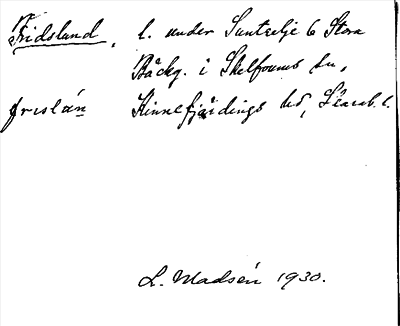 Fridslund, l. under Suntetje 6 Stora
Bäckg. i Skelfvums sn,
frislán Kinnefjärdings hd, Skarab. l.
L. Madsén 1930.